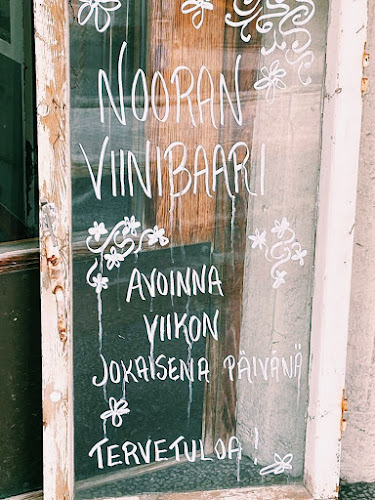 NOORAN
VIINIBAARI
AVOINNA
VIIKON
JOKAISENA PÄIVÄNÄ
TERVETULOA!